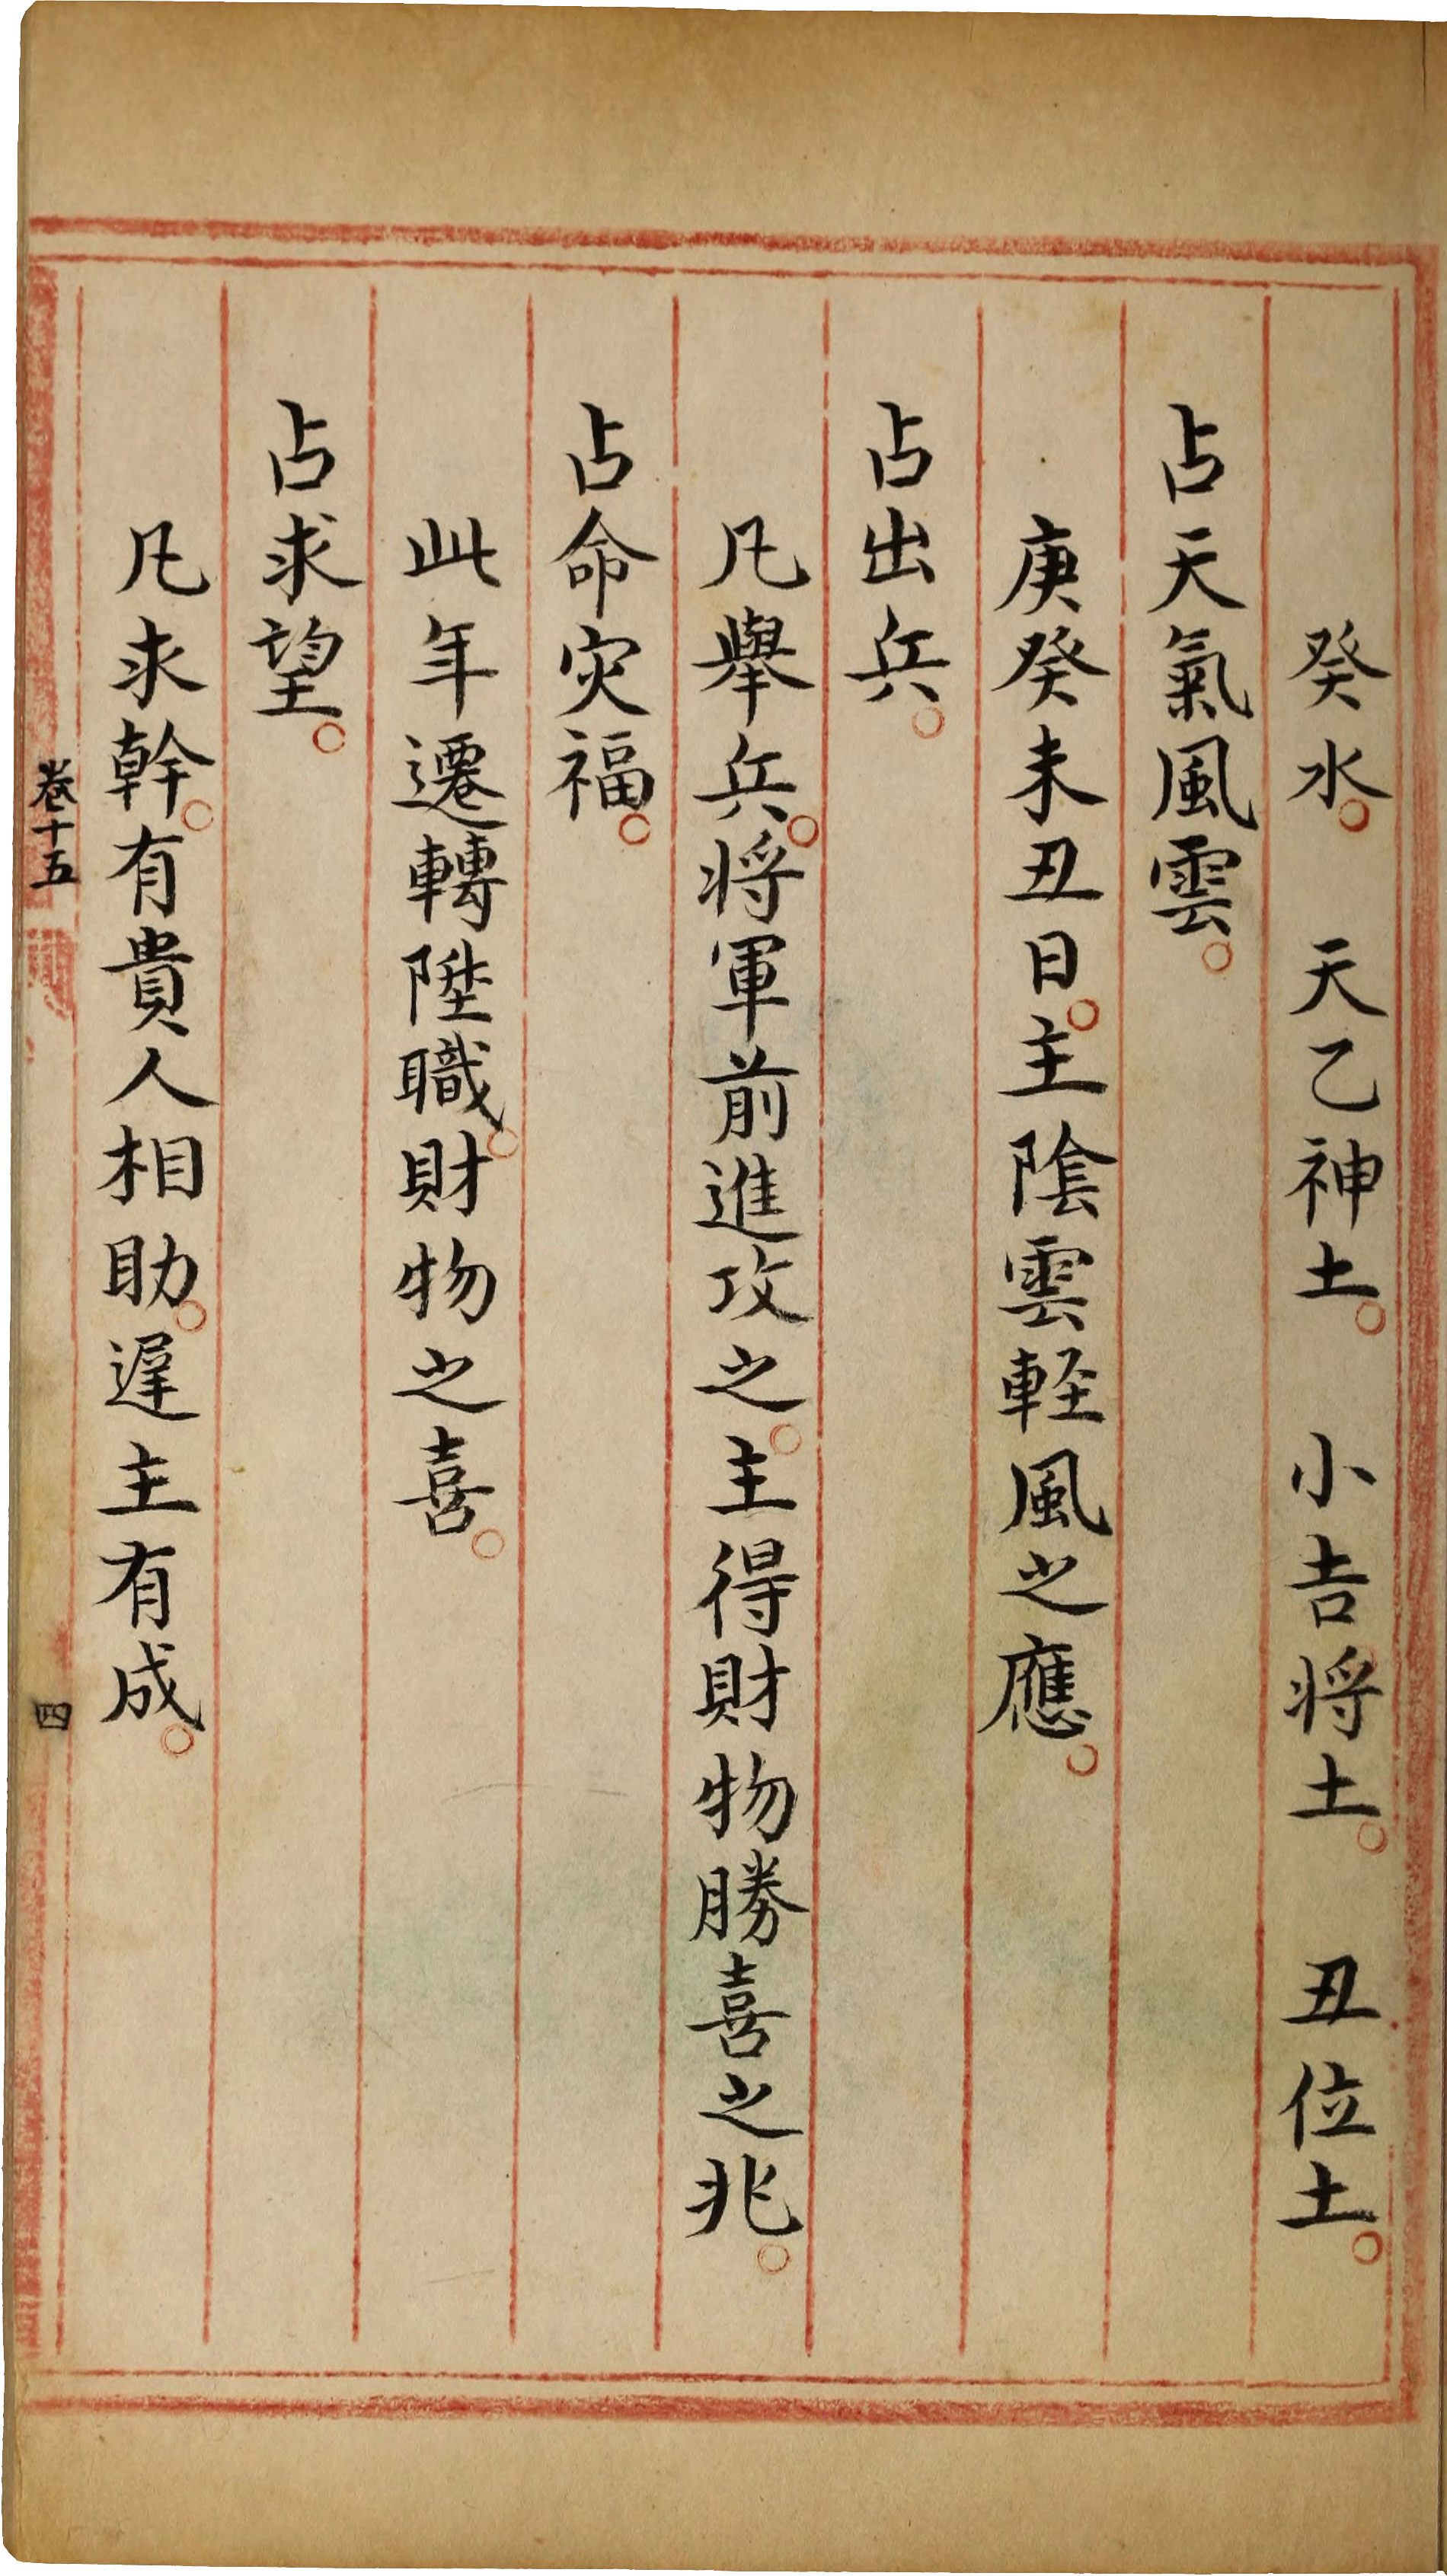 癸水。　天乙神土。　小吉将土。　丑位土。
占天氣風雲。
庚癸未丑日。主陰雲軽風之應。
占出兵。
凡舉兵。将軍前進攻之。主得財物勝喜之兆。
占命灾福。
此年遷轉陞職。財物之喜。
占求望。
凡求幹。有貴人相助。遲主有成。
卷十五
四